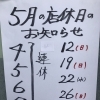 5月の店休日の
お知らせ
4 12(日)
5 連休 19(日)
6 22(水)
26(日)